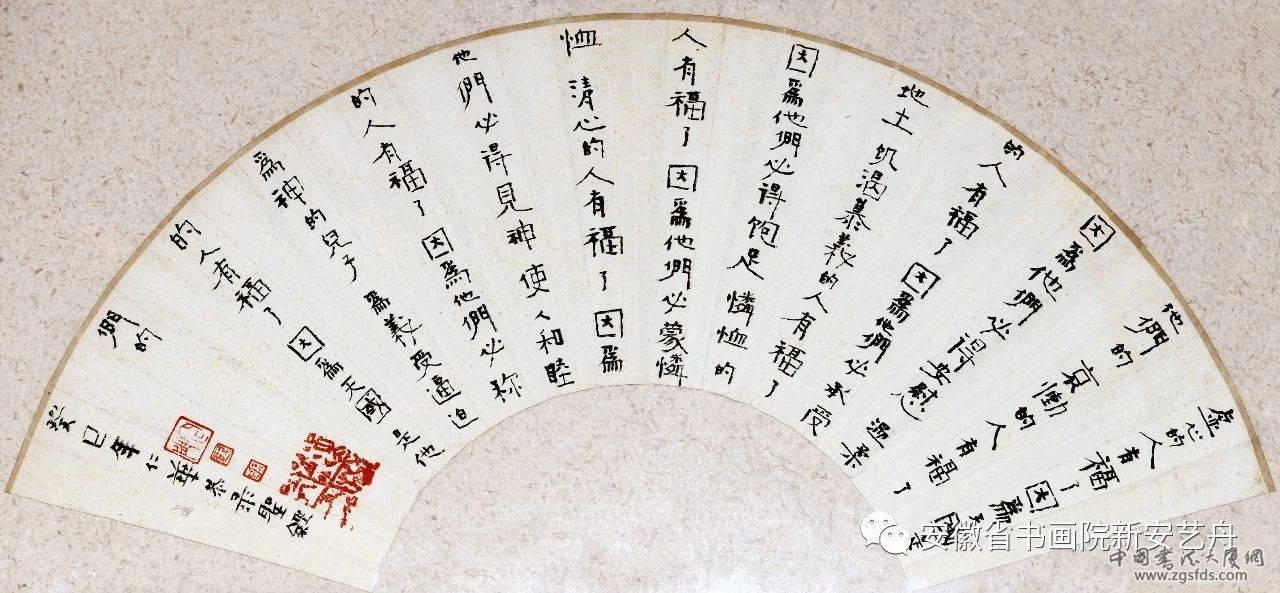 虛心的人有福了因爲天國是
他們的哀慟的人有福了
因爲他們必得安慰溫柔
的人有福了因爲他們必承受
地土飢渴慕義的人有福了
因爲他們必得飽足憐恤的
人有福了因爲他們必蒙憐
恤清心的人有福了因爲
他們必得見神使人和睦
的人有福了因爲他們必称
爲神的兒子爲義受逼迫
的人有福了因爲天國是他
們的
癸巳年仁華恭录聖經
安徽省书画院新安艺舟
中国书法大厦網
www.zgsfds.com